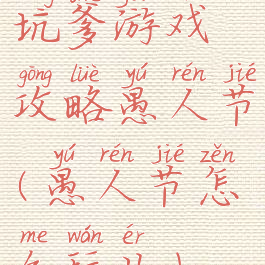 坑爹游戏
gōng lüè yú rén jié
攻略愚人节
yú rén jié zěn
(愚人节怎
me wán ér